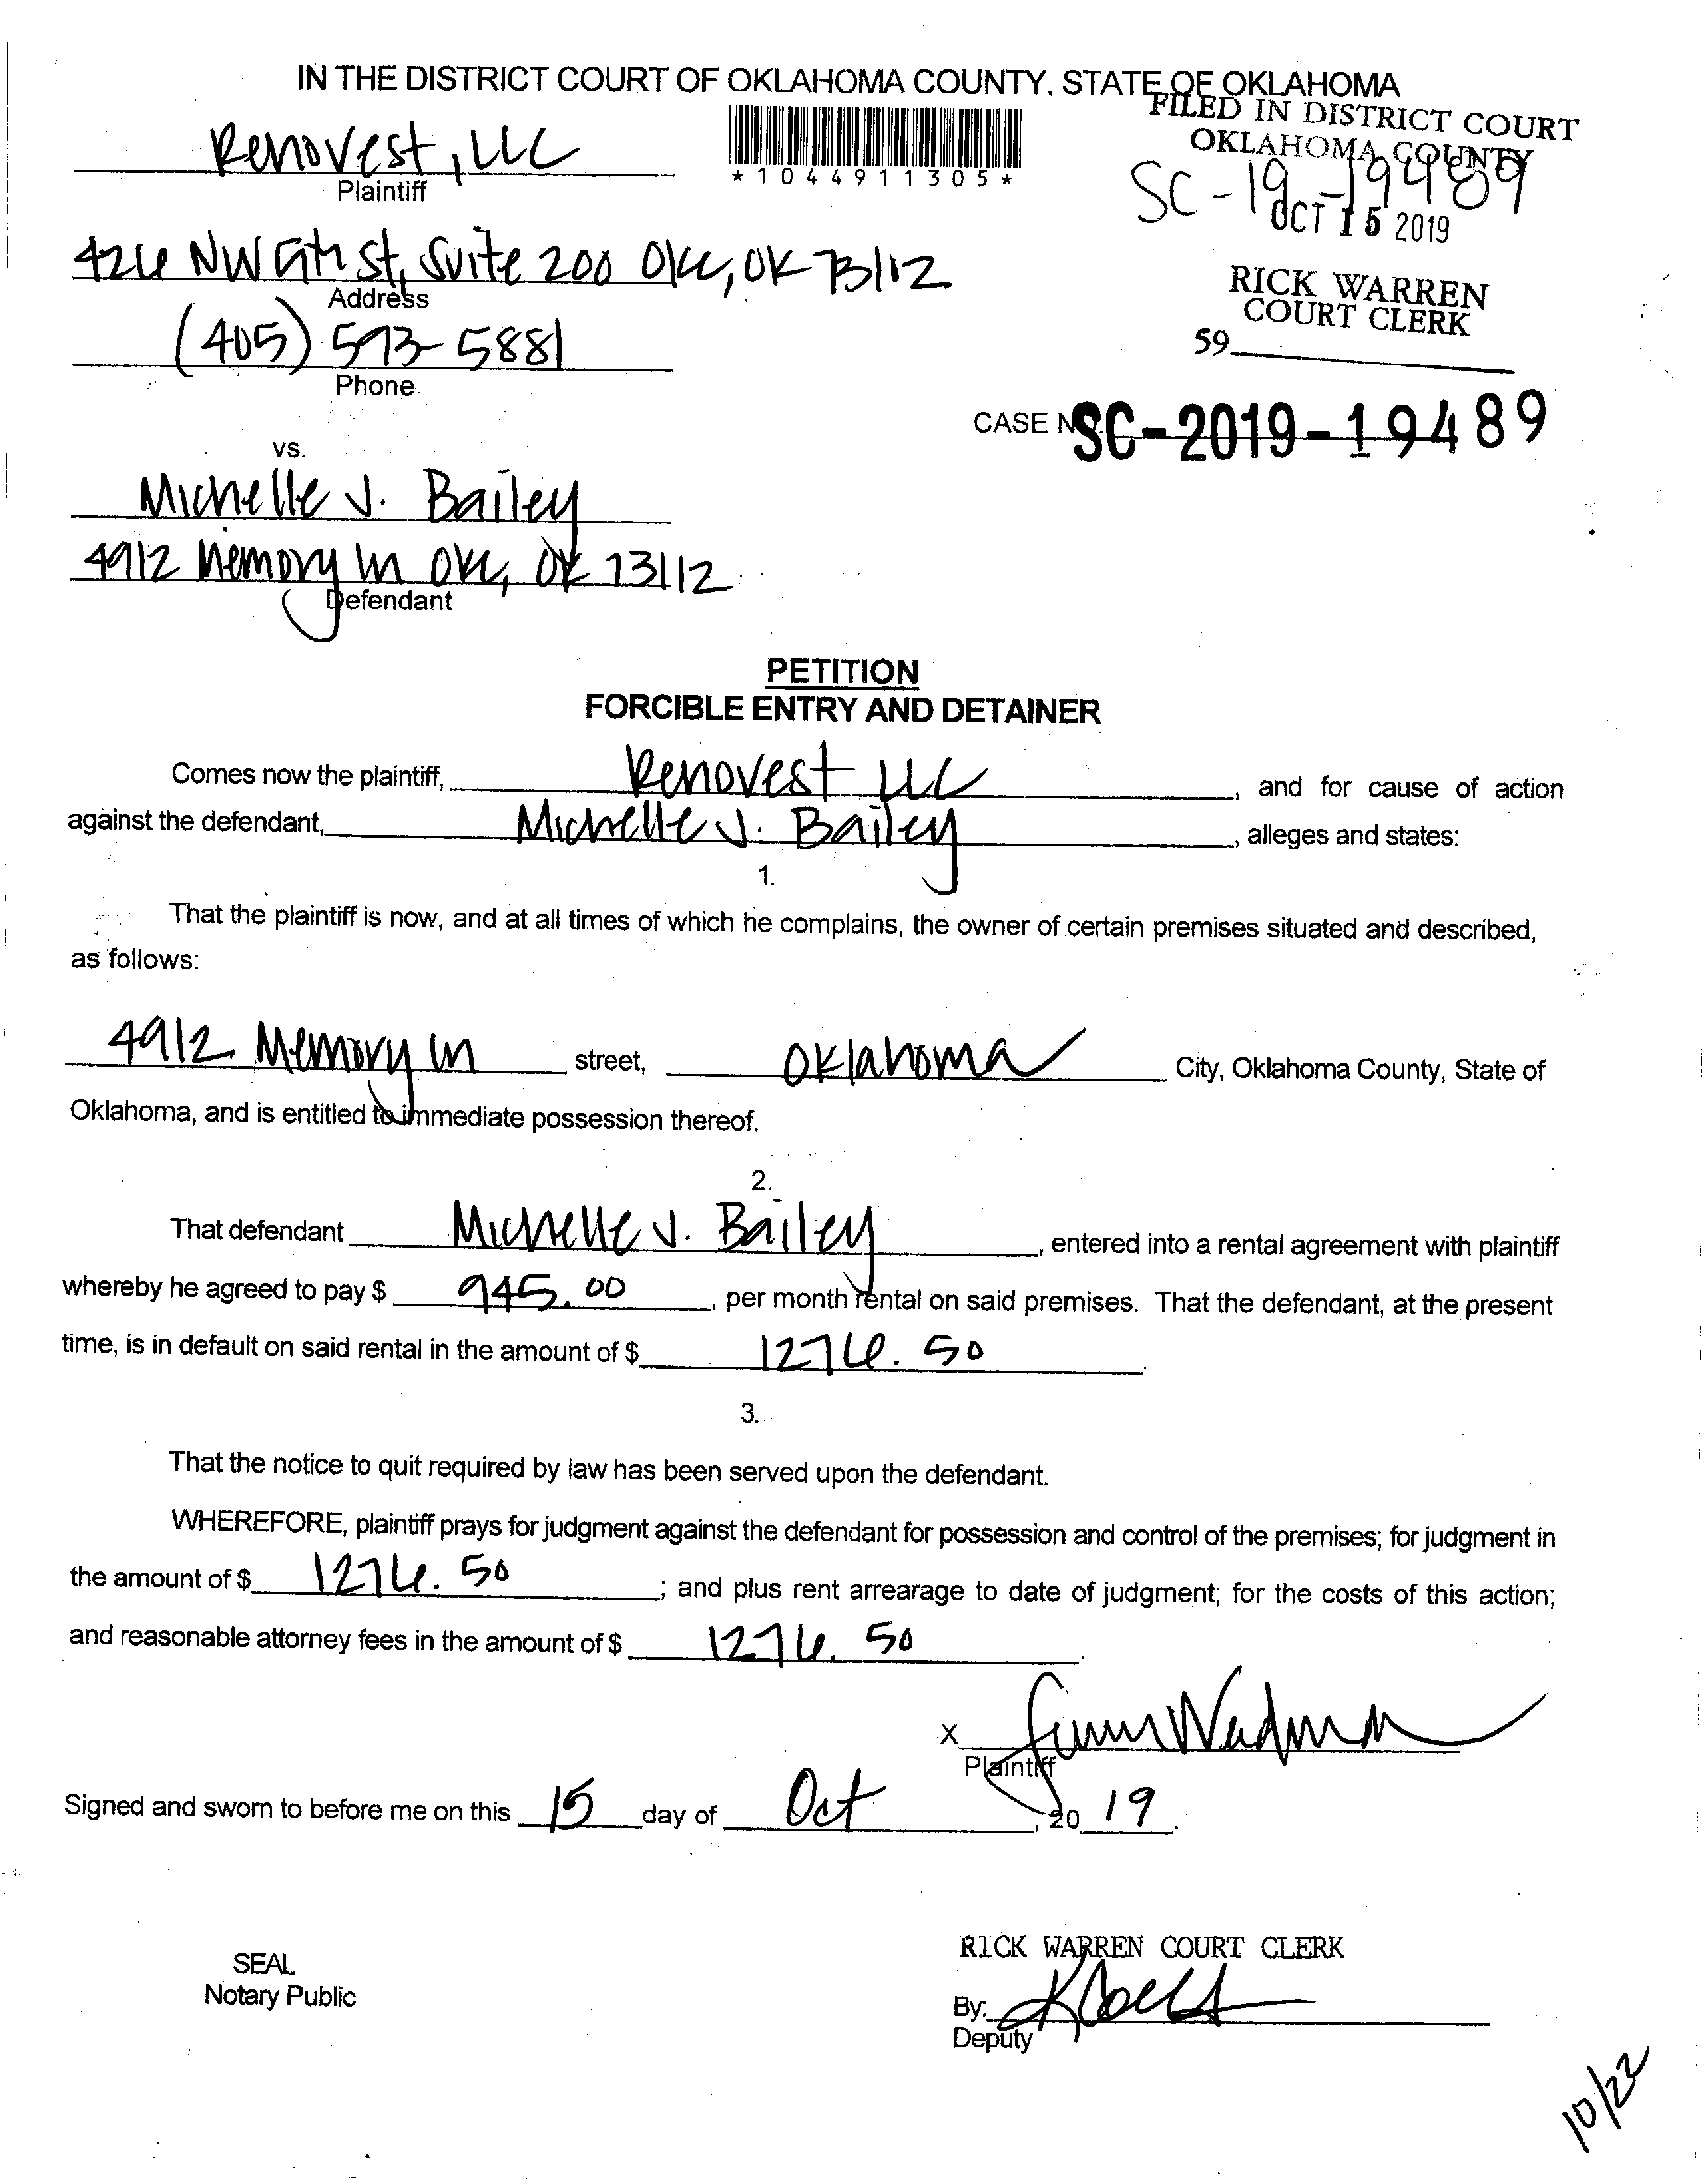 IN THE DISTRICT COURT OF OKLAHOMA COUNTY, STATE OF OKLAHOMA
FILED IN DISTRICT COURT
OKLAHOMA COUNTY
Renovest, LLC
Plaintiff
*1044911305*
SC-19-19489
OCT 15 2019
426 NW 6th St, Suite 200 OKC, OK 73112
Address
RICK WARREN
COURT CLERK
(405) 593-5881
59
Phone
CASE NO. SC-2019-19489
vs.
Michelle J. Bailey
4912 Memory Ln OKC, OK 73112
Defendant
PETITION
FORCIBLE ENTRY AND DETAINER
Comes now the plaintiff, Renovest LLC, and for cause of action
against the defendant, Michelle J. Bailey, alleges and states:
1.
That the plaintiff is now, and at all times of which he complains, the owner of certain premises situated and described,
as follows:
4912 Memory Ln street, Oklahoma City, Oklahoma County, State of
Oklahoma, and is entitled to immediate possession thereof.
2.
That defendant Michelle J. Bailey, entered into a rental agreement with plaintiff
whereby he agreed to pay $ 945.00, per month rental on said premises. That the defendant, at the present
time, is in default on said rental in the amount of $ 1276.50.
3.
That the notice to quit required by law has been served upon the defendant.
WHEREFORE, plaintiff prays for judgment against the defendant for possession and control of the premises; for judgment in
the amount of $ 1276.50; and plus rent arrearage to date of judgment; for the costs of this action;
and reasonable attorney fees in the amount of $ 1276.50.
X
Plaintiff
Signed and sworn to before me on this 15 day of Oct, 20 19.
SEAL
Notary Public
RICK WARREN COURT CLERK
By:
Deputy
10/22